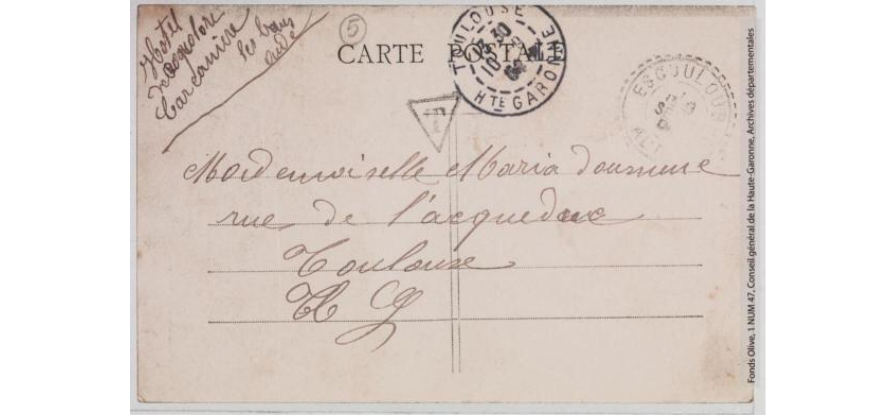 Hotel
de
Carcanière
les bains
aude
5
CARTE POSTALE
TOULOUSE
10 30
HTE GARONNE
T
ESCOULOUBRE
Mademoiselle Maria
rue de l'acqueduc
Toulouse
H G
Fonds Olive, 1 NUM 47, Conseil général de la Haute-Garonne, Archives départementales